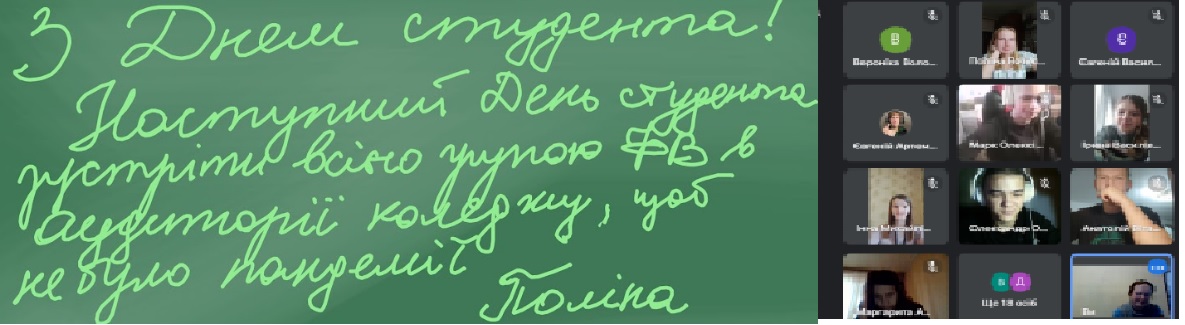 З Днем студента!
Наступний День студента
зустріти всією групою ФВ в
аудиторії коледжу, щоб
не було пандемії
Поліна
Вероніка Боло...
Євгеній Васил...
Євгеній Артем...
Марк Олексі...
Ірина Василів...
Інна Михайлі...
Олександр О...
Анатолій
Маргарита А...
В Д
Ще 18 осіб
Ви